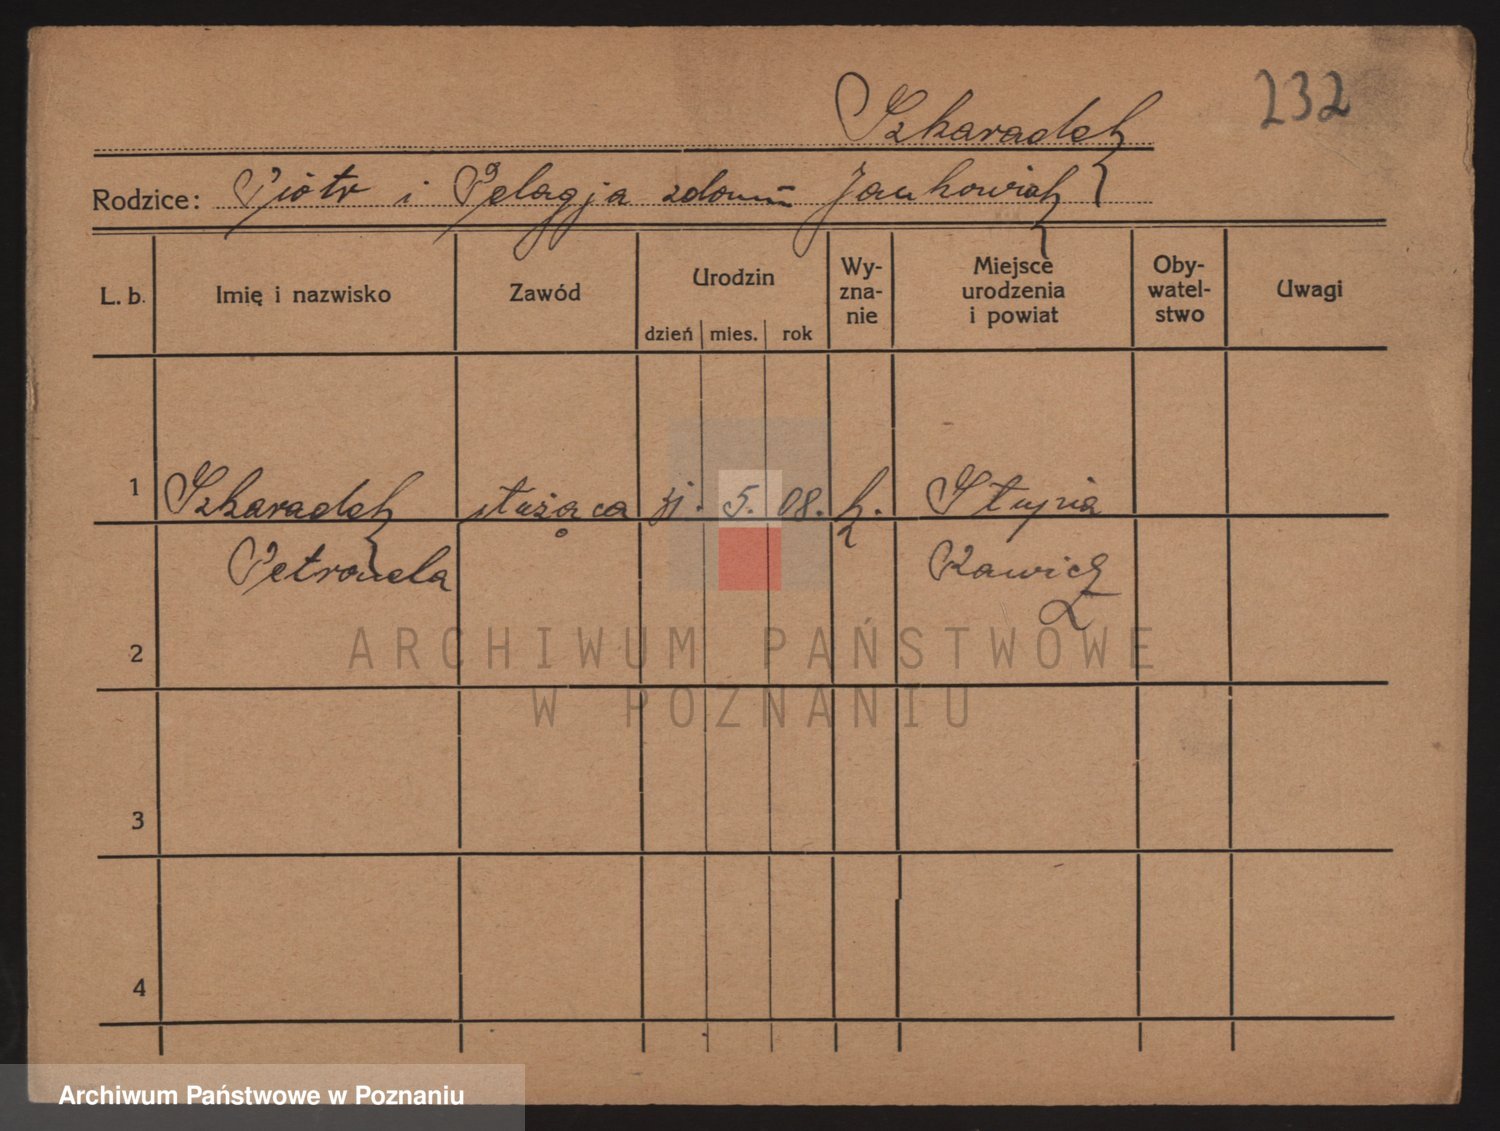 232
Szkaradek
Rodzice: Piotr i Pelagja zdomu Jankowiak
L. b. Imię i nazwisko Zawód Urodzin dzień mies. rok Wy-zna-nie Miejsce urodzenia i powiat Oby-watel-stwo Uwagi
1 Szkaradek służąca 31. 5. 08. k. Stupia
Petronela Rawicz
2
ARCHIWUM PAŃSTWOWE
W POZNANIU
3
4
Archiwum Państwowe w Poznaniu